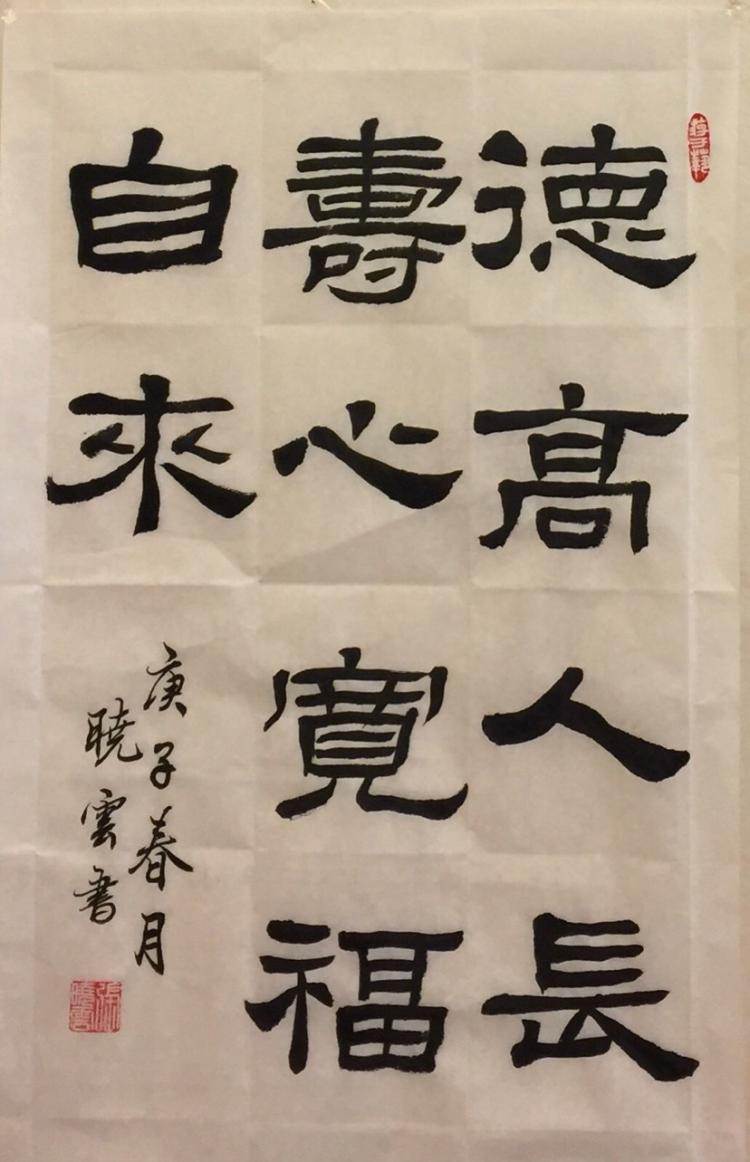 德高人長
壽心寬福
自來
庚子春月
曉雲書